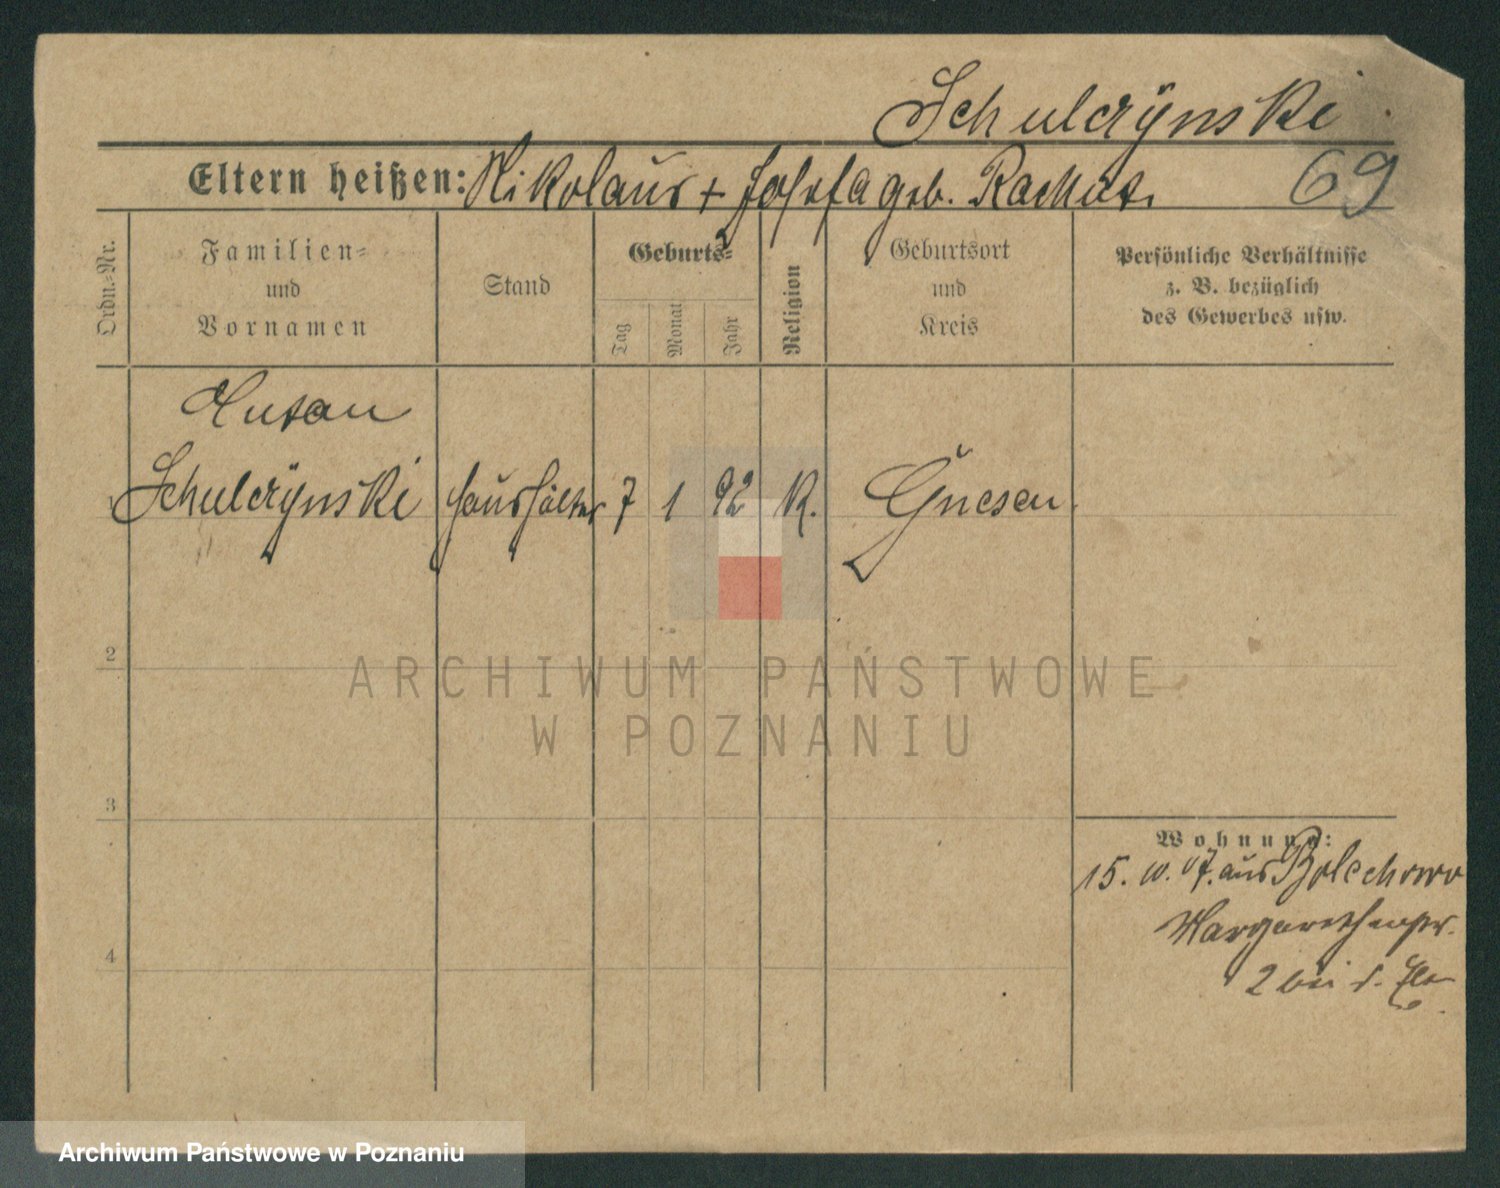 Schulczÿnski
Eltern heißen: Nikolaus + Josefa geb.
69
Ordn.-Nr.
Familien-
und
Vornamen
Stand
Geburts-
Tag
Monat
Jahr
Religion
Geburtsort
und
Kreis
Persönliche Verhältnisse
z. B. bezüglich
des Gewerbes usw.
Schulczÿnski Haushälter 7 1 92 K. Gnesen
2
3
4
Wohnung:
15. 10. 07. aus Bolechowo
2 bei d.
ARCHIWUM PAŃSTWOWE
W POZNANIU
Archiwum Państwowe w Poznaniu